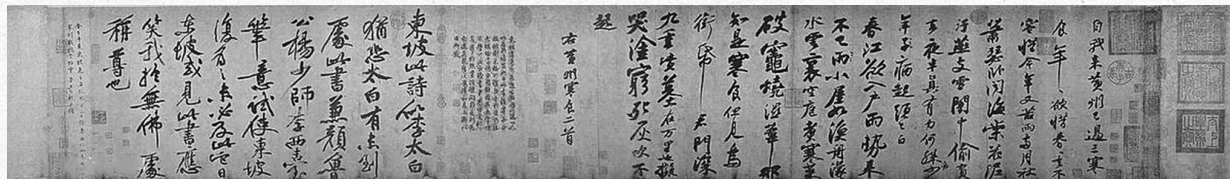 自我来黄州已過三寒
食年〻欲惜春〻去不
容惜今年又苦雨兩月秋
蕭瑟卧聞海棠花泥
汙燕支雪闇中偷負
去夜半真有力何殊少
年子病起頭已白
春江欲入户雨勢来
不已雨小屋如漁舟濛〻
水雲裏空庖煮寒菜
破竈燒濕葦那
知是寒食但見烏
銜帋君門深
九重墳墓在万里也擬
哭塗窮死灰吹不
起
右黄州寒食二首
東坡此詩似李太白
猶恐太白有未到
處此書兼顔魯
公楊少師李西臺
筆意試使東坡
復為之未必及此它日
東坡或見此書應
笑我於無佛處
稱尊也